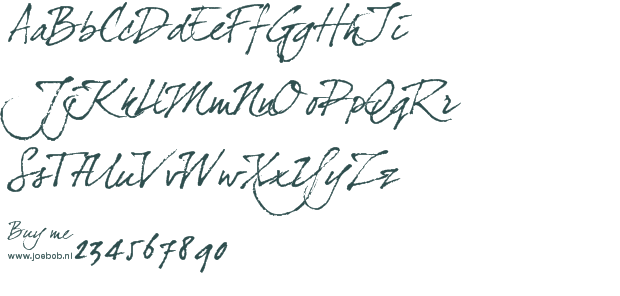 AaBbCcDdEeFfGgHhIi
JjKkLlMmNnOoPpQqRr
SsTtUuVvWwXxYyZz
Buy me
www.joebob.nl 234567890